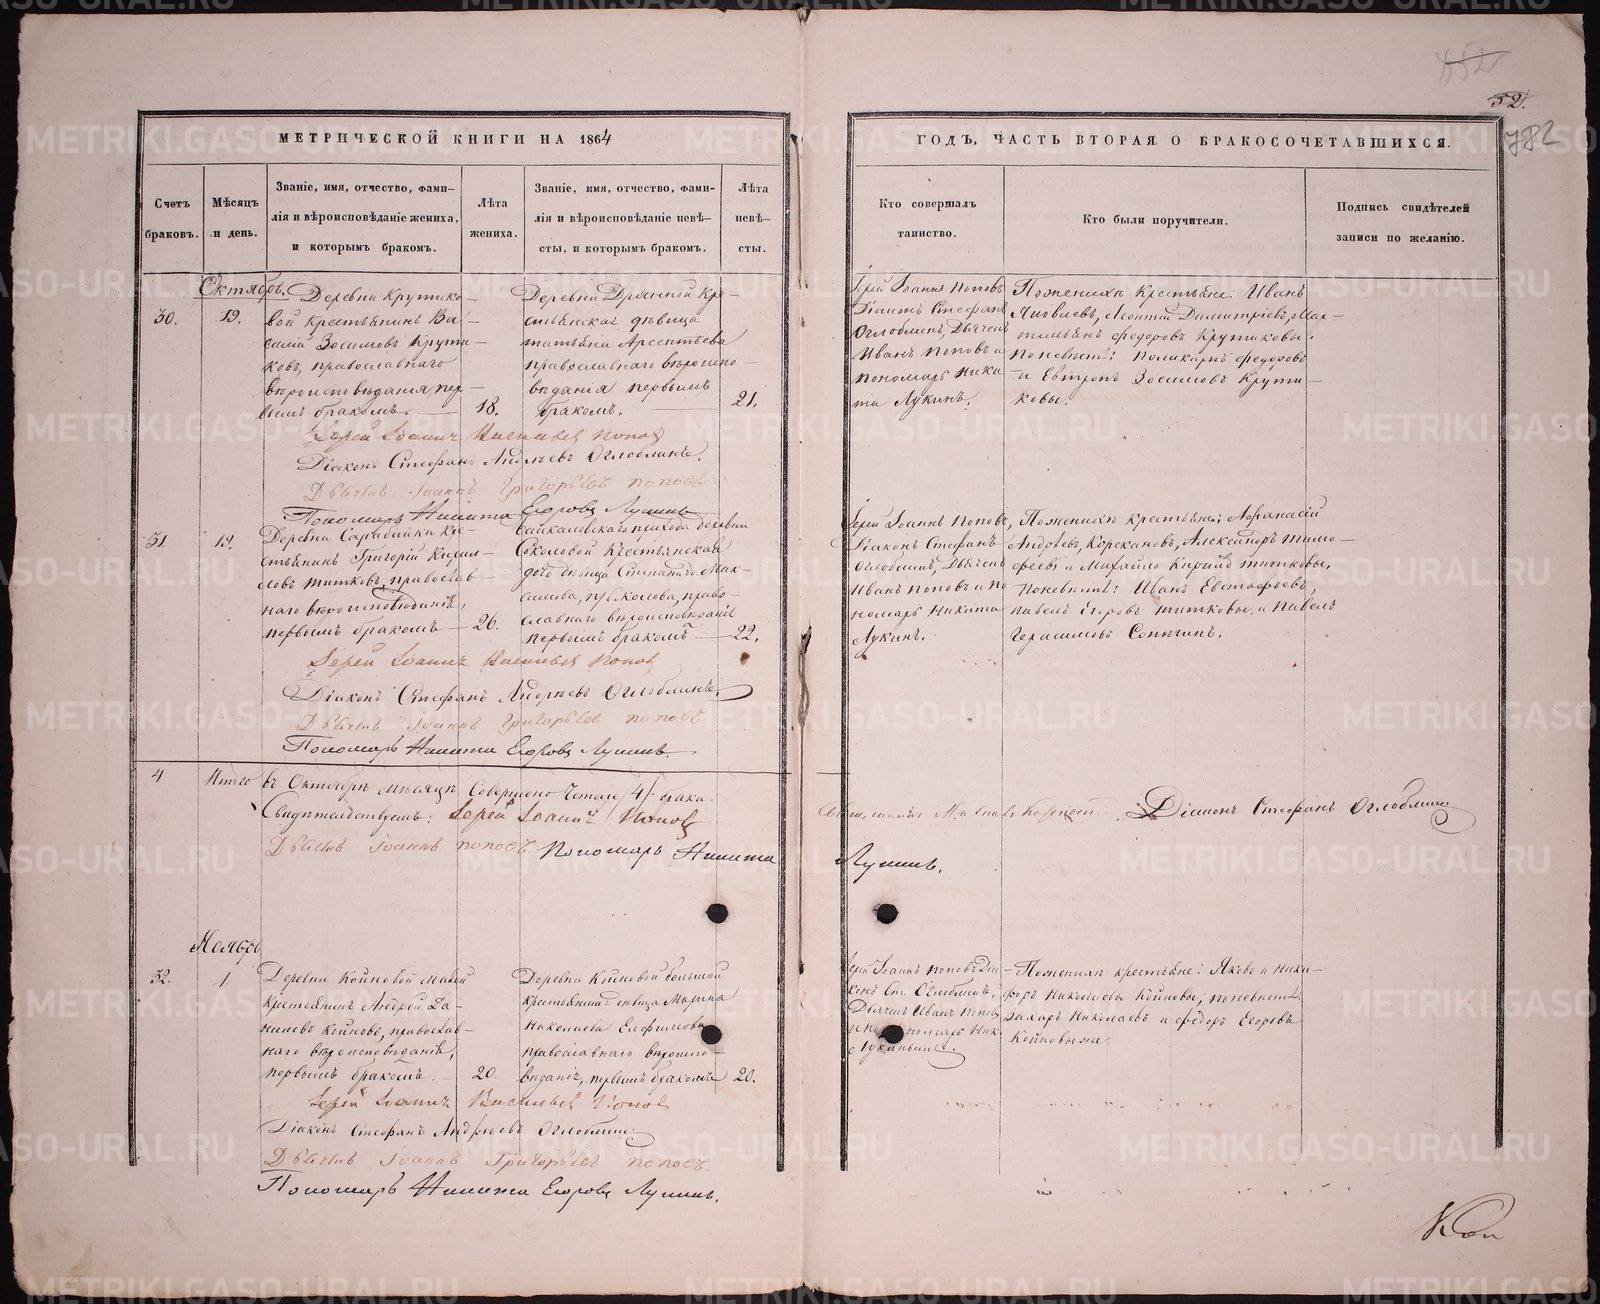 52.
782
МЕТРИЧЕСКОЙ КНИГИ НА 1864
ГОДЪ, ЧАСТЬ ВТОРАЯ О БРАКОСОЧЕТАВШИХСЯ.
Счетъ
браковъ.
Мѣсяцъ
и день.
Званіе, имя, отчество, фами-
лія и вѣроисповѣданіе жениха,
и которымъ бракомъ.
Лѣта
жениха.
Званіе, имя, отчество, фами-
лія и вѣроисповѣданіе невѣ-
сты, и которымъ бракомъ.
Лѣта
невѣ-
сты.
Кто совершалъ
таинство.
Кто были поручители.
Подпись свидѣтелей
записи по желанію.
Октябрь.
30.
19.
Деревни Крутико-
вой крестьянинъ Ва-
силій Зосимовъ Крути-
ковъ, православнаго
вѣроисповѣданія, пер-
вымъ бракомъ.
18.
Деревни Дрянной Кре-
стьянская дѣвица
татьяна Арсентьева
православнаго вѣроиспо-
вѣданія первымъ
бракомъ.
21.
Іерей Іоаннъ Поповъ
Діаконъ Стефанъ
Оглоблинъ, Дьячекъ
Иванъ Поповъ и
пономарь Ники
та Лукинъ.
По женихѣ Крестьяне: Иванъ
Яковлевъ, Леонтій Димитріевъ, Мар-
темьянъ Федоровъ Крутиковы.
По невѣстѣ: Поликарпъ Федоровъ
и Евтропъ Зосимовъ Крути-
ковы.
Іерей Іоаннъ Васильевъ Поповъ
Діаконъ Стефанъ Андреевъ Оглоблинъ.
Дьячекъ Іоаннъ Григорьевъ Поповъ
Пономарь Никита Егоровъ Лукинъ
31.
19.
Деревни Сарабайки кре-
стьянинъ Григорій Кирил-
ловъ титковъ, православ-
наго вѣроисповѣданія,
первымъ бракомъ
26.
Байкаловскаго прихода деревни
Соколовой Крестьянская
дочь дѣвица Степанида Мак-
симова, Соколова, право-
славнаго вѣроисповѣданія
первымъ бракомъ
22.
Іерей Іоаннъ Поповъ,
Діаконъ Стефанъ
Оглоблинъ, Дьячекъ
Иванъ Поповъ и по
номарь Никита
Лукинъ.
По женихѣ крестьяне: Афанасій
Андреевъ, Корскановъ, Александръ тимо-
феевъ и Михайло Кирилъ титковы,
По невѣстѣ: Иванъ Евстафьевъ,
павелъ Егоровъ титковы, и Павелъ
Герасимовъ Сопигинъ.
Іерей Іоаннъ Васильевъ Поповъ
Діаконъ Стефанъ Андреевъ Оглоблинъ,
Дьячекъ Іоаннъ Григорьевъ Поповъ
Пономарь Никита Егоровъ Лукинъ.
4
Итого въ Октябрѣ мѣсяцѣ Совершено четыре /4/ брака.
Свидѣтельствуемъ: Іерей Іоаннъ Поповъ
Діаконъ Стефанъ Оглоблинъ
Дьячекъ Іоаннъ Поповъ Пономарь Никита
Лукинъ.
Ноябрь
32.
1.
Деревни Койновой малой
крестьянинъ Андрей Да-
ниловъ Койновъ, православ-
наго вѣроисповѣданія,
первымъ бракомъ.
20.
Деревни Койновой большой
крестьянская дѣвица Марина
Николаева Елфимова
православнаго вѣроиспо-
вѣданія, первымъ бракомъ
20.
Іерей Іоаннъ Поповъ Діа-
конъ Ст. Оглоблинъ,
Дьячекъ Иванъ Попов
и пономарь Ник.
Лукинымъ.
По женихѣ крестьяне: Яковъ и Ники-
форъ Николаевы Койновы; по невѣстѣ:
захаръ Николаевъ и федоръ Егоровъ
Койновы же.
Іерей Іоаннъ Васильевъ Поповъ
Діаконъ Стефанъ Андреевъ Оглоблинъ
Дьячекъ Іоаннъ Григорьевъ Поповъ.
Пономарь Никита Егоровъ Лукинъ.
METRIKI.GASO-URAL.RU